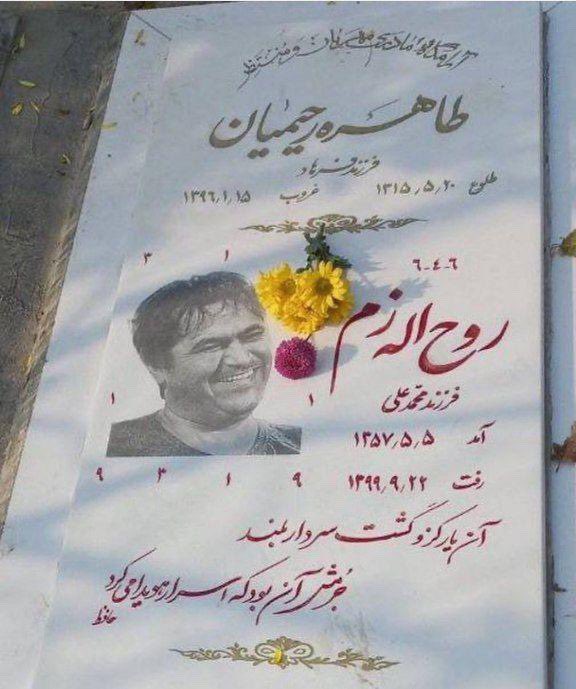 آرامگاه مادری مهربان و منتظر
طاهره رحیمیان
فرزند فرهاد
طلوع ۱۳۱۵٫۵٫۲۰ غروب ۱۳۹۶٫۱٫۱۵
۳ ۱ ۶-۴-۶
روح اله زم
۱ ۱ فرزند محمدعلی
آمد ۱۳۵۷٫۵٫۵
رفت ۱۳۹۹٫۹٫۲۲
۹ ۳ ۱ ۹
آن یار کزو گشت سر دار بلند
جرمش آن بود که اسرار هویدا می کرد
حافظ